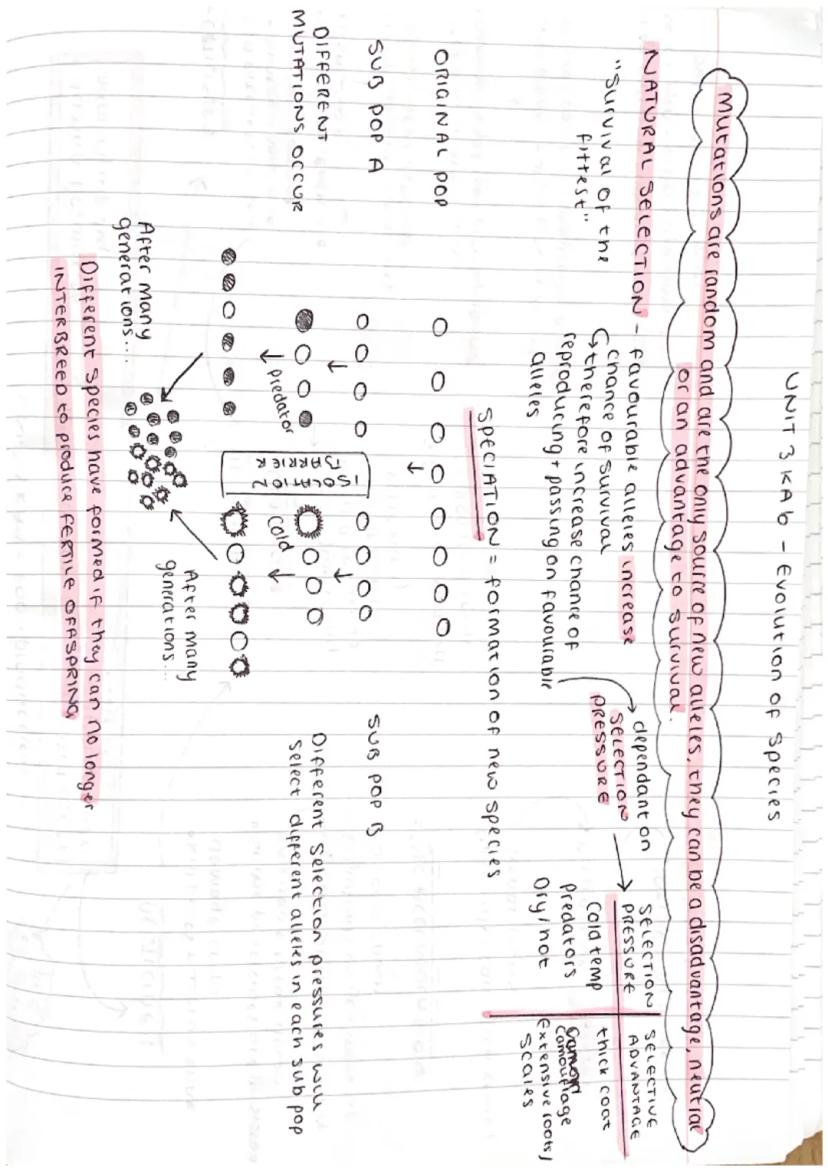 UNIT 3 KA6 - Evolution of Species
Mutations are random and are the only source of new alleles, they can be a disadvantage, neutral
or an advantage to survival.
NATURAL SELECTION - favourable alleles increase
chance of survival
↳ therefore increase chance of
reproducing + passing on favourable
alleles
"Survival of the
fittest"
dependant on
SELECTION
PRESSURE
SELECTION
PRESSURE
SELECTIVE
ADVANTAGE
Cold temp
thick coat
predators
Camouflage
Dry/hot
Extensive roots/
Scales
SPECIATION = formation of new species
ORIGINAL POP
SUB POP A
SUB POP B
ISOLATION
BARRIER
DIFFERENT
MUTATIONS OCCUR
predator
Cold
Different Selection pressures will
Select different alleles in each sub pop
After many
generations...
After many
generations...
Different species have formed if they can no longer
INTERBREED to produce FERTILE OFFSPRING